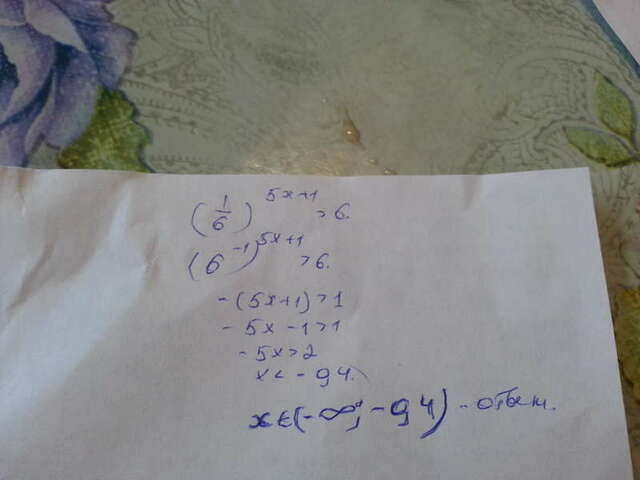 (1/6)^(5x+1) > 6.
(6^(-1))^(5x+1) > 6.
-(5x+1) > 1
-5x -1 > 1
-5x > 2
x < -0,4.
x ∈ (-∞; -0,4) - ответ.